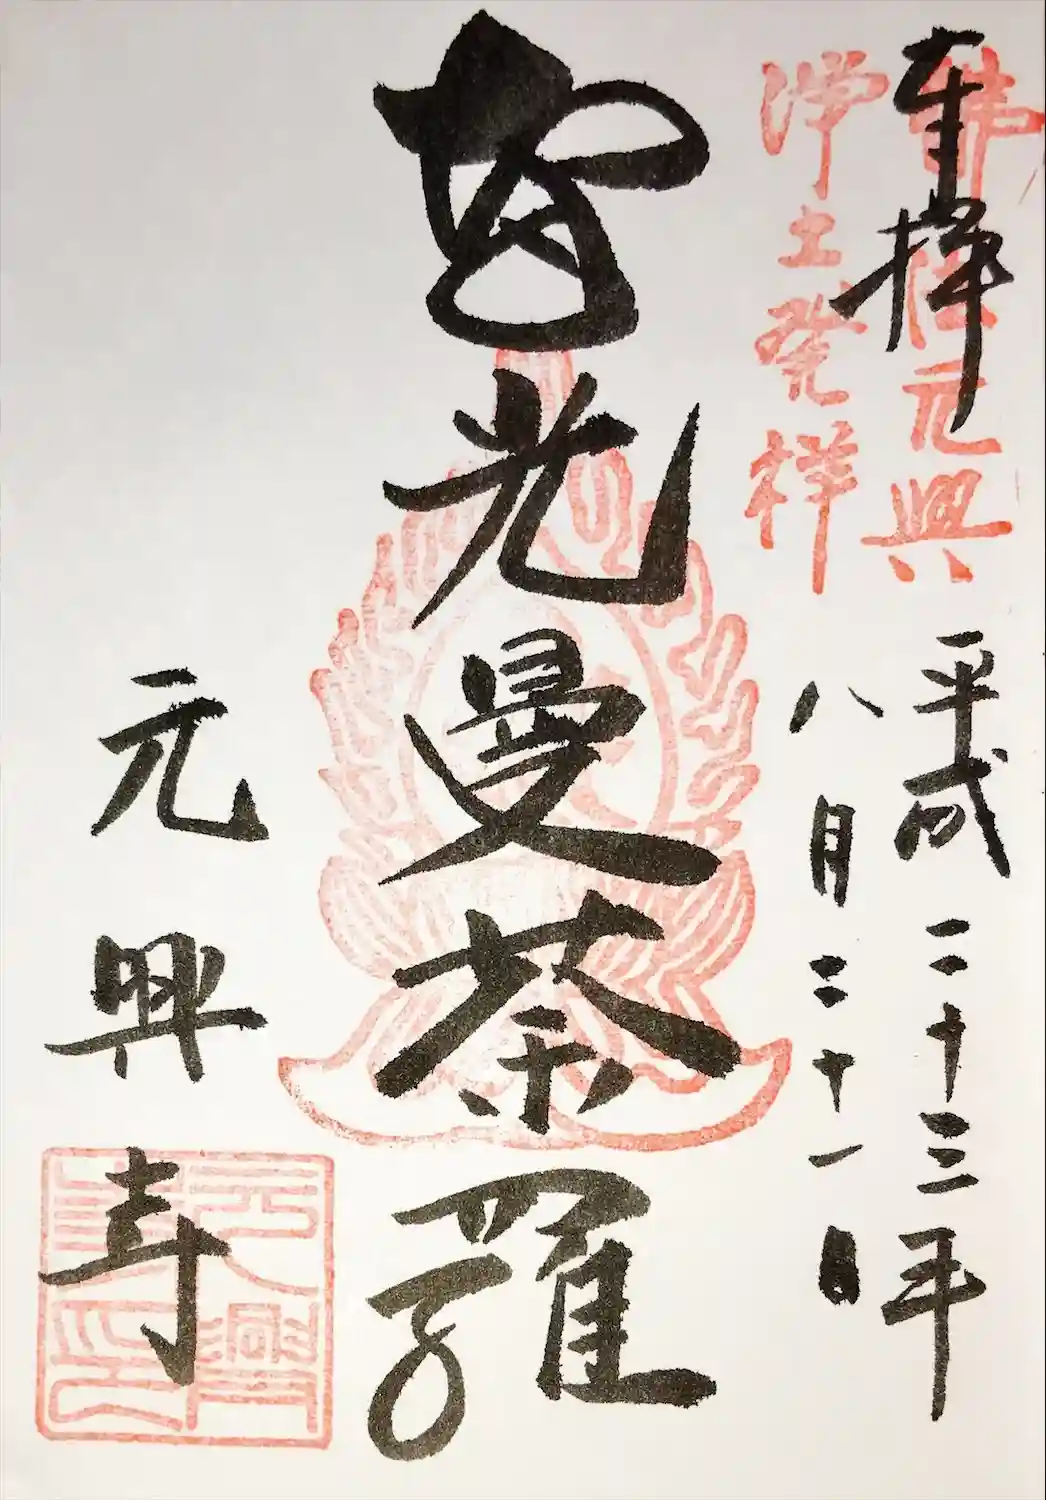 奉拝
佛法元興
浄土発祥
平成二十三年
八月三十一日
智光曼荼羅
元興寺